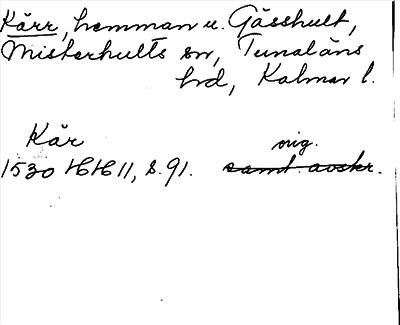 Kärr, hemman u. Gässhult,
Misterhults sn, Tunaläns
hd, Kalmar l.
Kär
orig.
1530 HH 11, s. 91. saml. avskr.